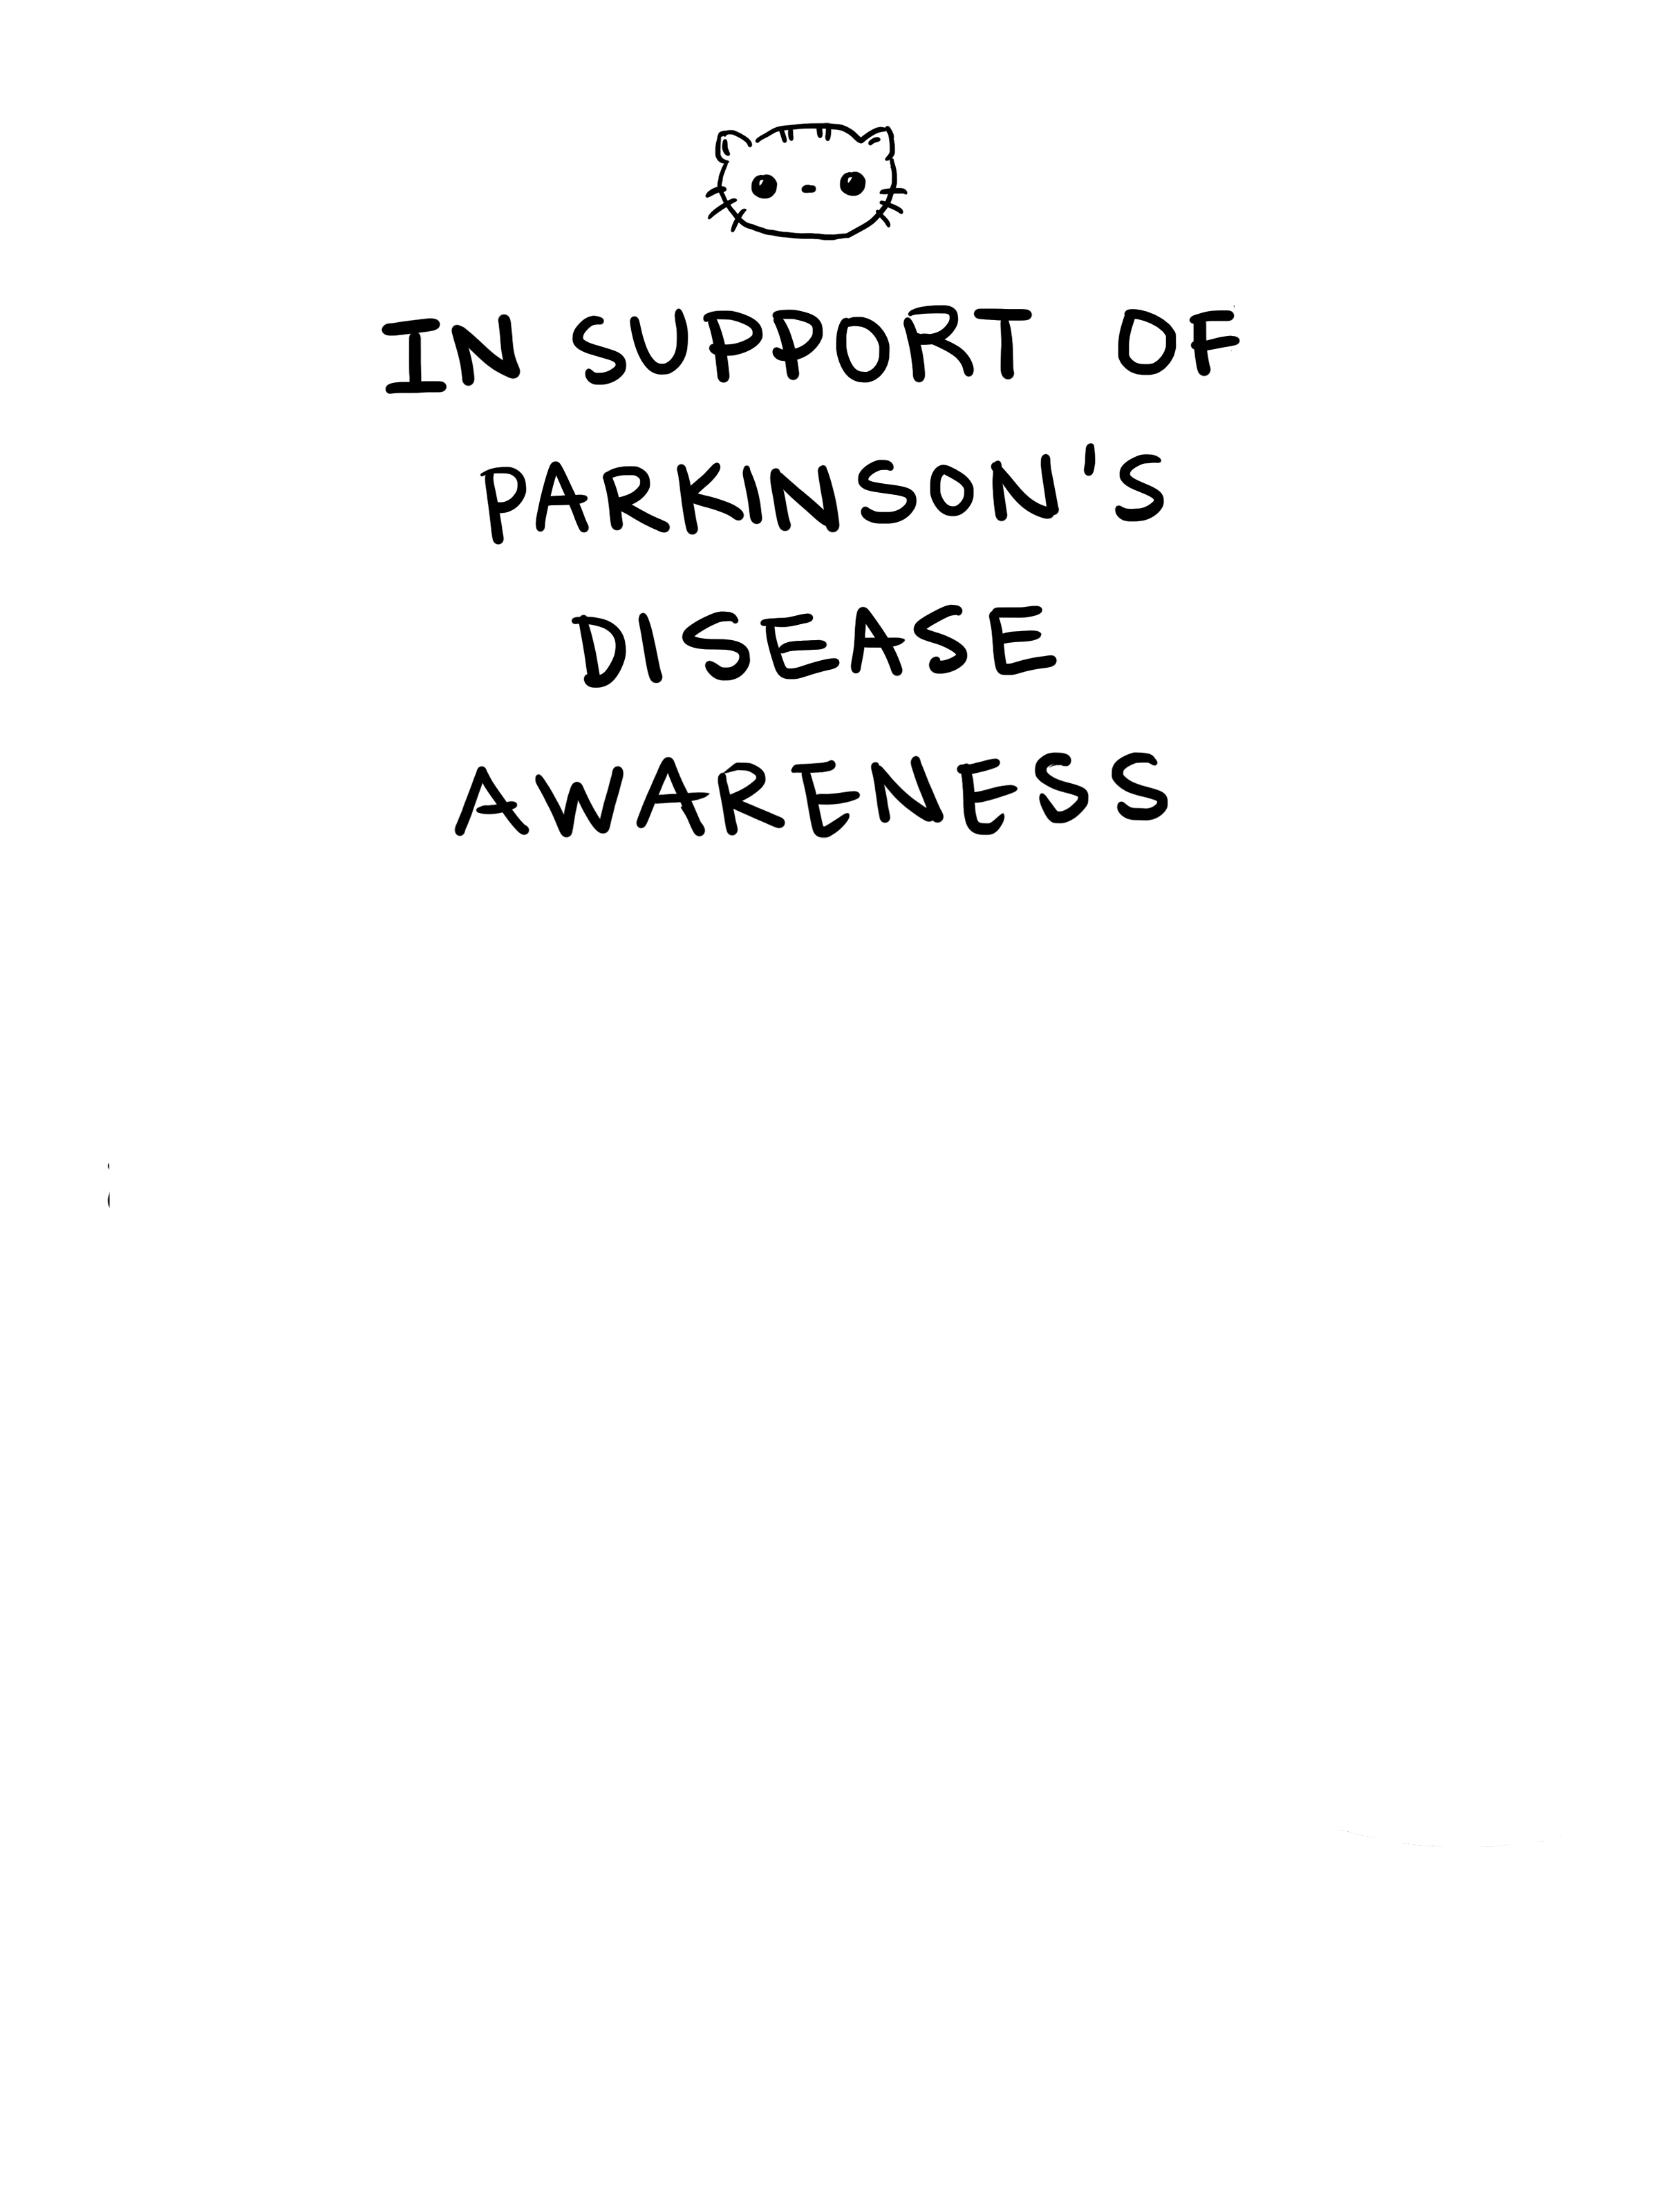 IN SUPPORT OF
PARKINSON'S
DISEASE
AWARENESS